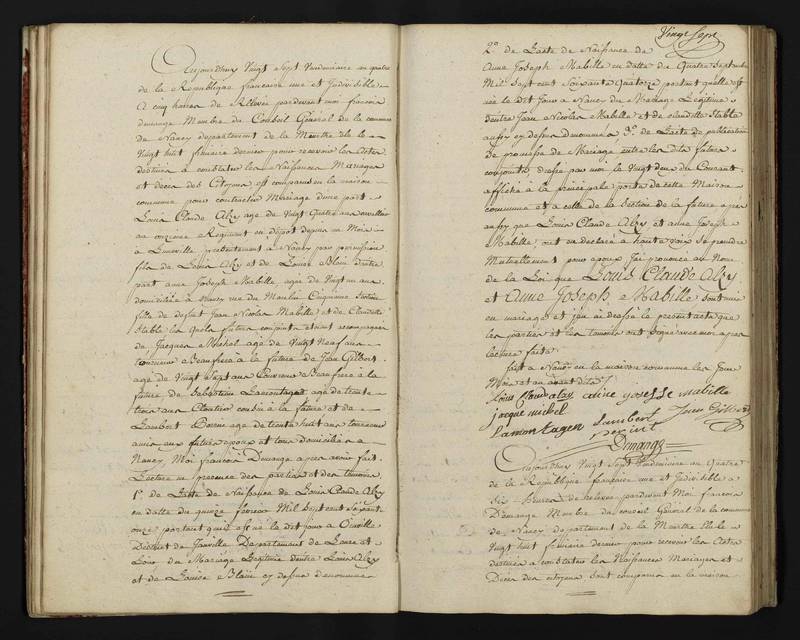 Aujourdhuy Vingt Sept Vendemiaire an quatre
de la Republique francaise une et Indivisible
a cinq heures de Relevée pardevant moi francois
demange Membre du Conseil General de la commune
de Nancy departement de la Meurthe élu le
Vingt huit frimaire dernier pour recevoir les actes
destinés a constater les Naissances Mariages
et deces des Citoyens est comparus en la maison
commune pour contracter Mariage dune part
Louis Claude Alzy age de Vingt quatre ans
au onzieme Regiment en depot depuis un Mois
a Luneville presentement a Nancy par permission
fils de Louis Alzy et de Louise Blain dautre
part anne Joseph Mabille agee de Vingt un ans
domiciliée a Nancy rue du Moulin Cinquieme Section
fille de defunt Jean Nicolas Mabille et de Claudette
Stable les quels futurs conjoints etoient accompagnes
de Jacques Michel age de Vingt Neuf ans
tourneur Beaufrere a la future de Jean Gilbert
age de Vingt Sept ans Couvreur Beaufrere a la
future de Sebastien Lamontagne age de trente
trois ans Cloutier cousin a la future et de
Lambert Perine age de trente huit ans tonneau
amis aux futurs epoux et tous domiciliés a
Nancy, Moi francois Demange apres avoir fait
Lecture en presence des parties et des temoins
1° de Lacte de Naissance de Louis Claude Alzy
en datte du quinze fevrier Mil Sept cent Soixante
onze portant quil est né le dit jour a
District de Janville Departement de Leure et
Loir du Mariage Legitime dentre Louis Alzy
et de Louise Blain cy dessus denommés
Vingt Sept
2° de Lacte de Naissance de
Anne Joseph Mabille en datte du Quatre Septembre
Mil Sept cent Soixante Quatorze portant quelle est
née le dit Jour a Nancy du Mariage Legitime
dentre Jean Nicolas Mabille et de Claudette Stable
aussy cy dessus Denommés 3° de Lacte de publication
de promesse de Mariage entre les dits futurs
conjoints dressé par moi le Vingt deux du Courant
affiché a la principale porte de cette Maison
commune et a celle de la Section de la future apres
aussy que Louis Claude Alzy et anne Joseph
Mabille ont eu declaré a haute voix Se prendre
Mutuellement pour epoux Jai prononcé au Nom
de la Loi que Louis Claude Alzy
et Anne Joseph Mabille sont unis
en mariage et jai dressé le present acte que
les parties et les temoins ont signé avec moi apres
lecture faite
fait a Nancy en la maison commune les Jour
Mois et an avant dits
Louis Claude alzy anne yosesse mabille
jacque michel
Lamontagen Lambert Jean Gilbert
perinet
Demange
Aujourdhuy Vingt Sept Vendemiaire an Quatre
de la Republique francaise une et Indivisible a
Six heures de relevée pardevant Moi francois
Demange Membre du conseil General de la commune
de Nancy departement de la Meurthe élu le
Vingt huit frimaire dernier pour recevoir les Actes
destinés a constater les Naissances Mariages et
Deces des citoyens sont comparus en la maison